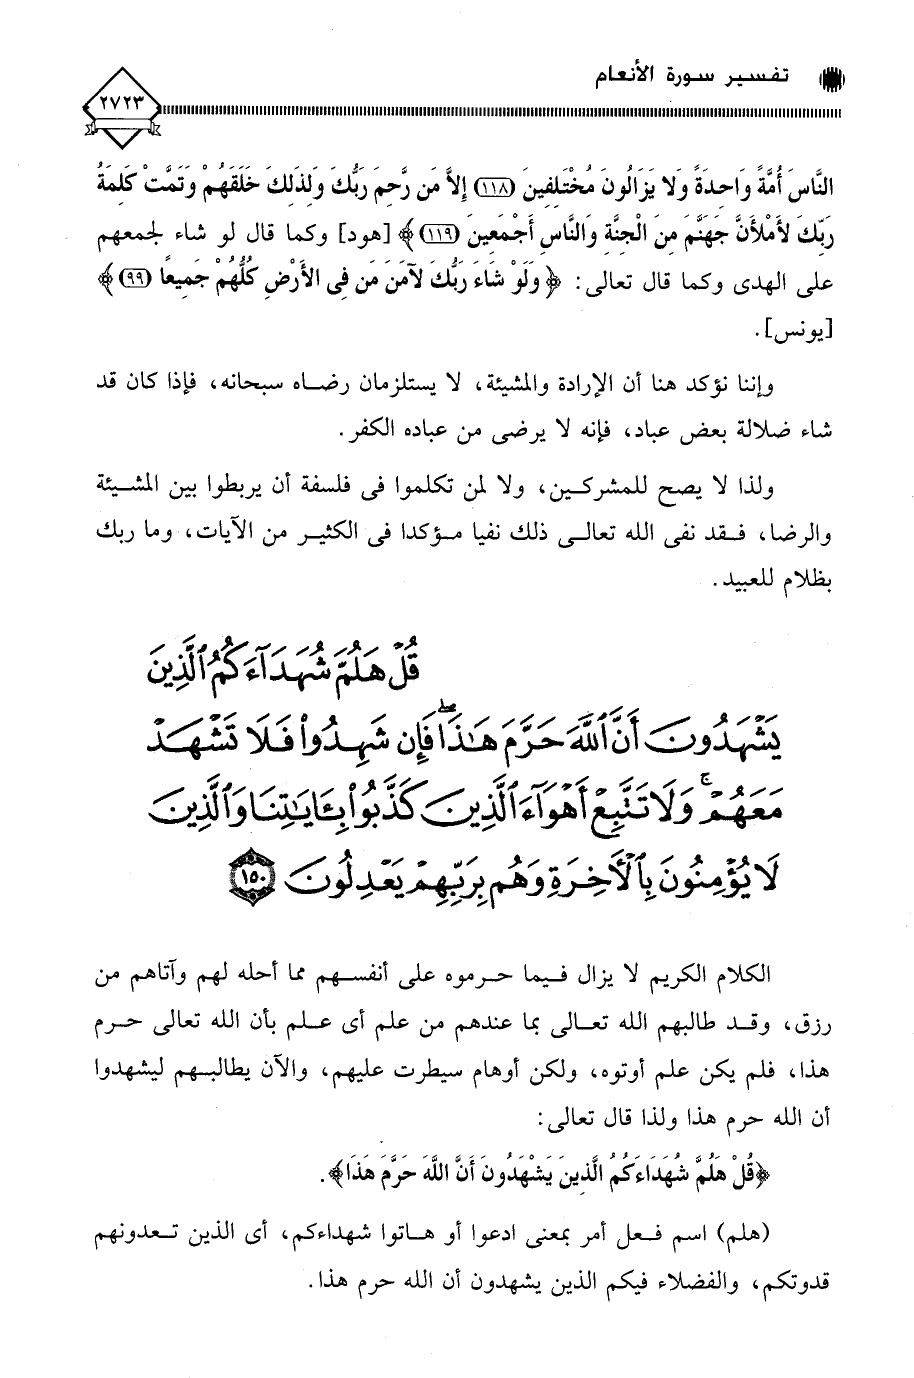 تفسير سورة الأنعام
٢٧٢٣
النَّاسَ أُمَّةً وَاحِدَةً وَلا يَزَالُونَ مُخْتَلِفِينَ (١١٨) إِلاَّ مَن رَّحِمَ رَبُّكَ وَلِذَلِكَ خَلَقَهُمْ وَتَمَّتْ كَلِمَةُ
رَبِّكَ لأَمْلأَنَّ جَهَنَّمَ مِنَ الْجِنَّةِ وَالنَّاسِ أَجْمَعِينَ (١١٩)﴾ [هود] وكما قال لو شاء لجمعهم
على الهدى وكما قال تعالى: ﴿وَلَوْ شَاءَ رَبُّكَ لآمَنَ مَن فِى الأَرْضِ كُلُّهُمْ جَمِيعًا (٩٩)﴾
[يونس].
وإننا نؤكد هنا أن الإرادة والمشيئة، لا يستلزمان رضاه سبحانه، فإذا كان قد
شاء ضلالة بعض عباد، فإنه لا يرضى من عباده الكفر.
ولذا لا يصح للمشركين، ولا لمن تكلموا فى فلسفة أن يربطوا بين المشيئة
والرضا، فقد نفى الله تعالى ذلك نفيا مؤكدا فى الكثير من الآيات، وما ربك
بظلام للعبيد.
قُلْ هَلُمَّ شُهَدَآءَكُمُ ٱلَّذِينَ
يَشْهَدُونَ أَنَّ ٱللَّهَ حَرَّمَ هَٰذَاۖ فَإِن شَهِدُوا۟ فَلَا تَشْهَدْ
مَعَهُمْۚ وَلَا تَتَّبِعْ أَهْوَآءَ ٱلَّذِينَ كَذَّبُوا۟ بِـَٔايَٰتِنَا وَٱلَّذِينَ
لَا يُؤْمِنُونَ بِٱلْأَخِرَةِ وَهُم بِرَبِّهِمْ يَعْدِلُونَ ١٥٠
الكلام الكريم لا يزال فيما حرموه على أنفسهم مما أحله لهم وآتاهم من
رزق، وقد طالبهم الله تعالى بما عندهم من علم أى علم بأن الله تعالى حرم
هذا، فلم يكن علم أوتوه، ولكن أوهام سيطرت عليهم، والآن يطالبهم ليشهدوا
أن الله حرم هذا ولذا قال تعالى:
﴿قُلْ هَلُمَّ شُهَدَاءَكُمُ الَّذِينَ يَشْهَدُونَ أَنَّ اللَّهَ حَرَّمَ هَذَا﴾.
(هلم) اسم فعل أمر بمعنى ادعوا أو هاتوا شهداءكم، أى الذين تعدونهم
قدوتكم، والفضلاء فيكم الذين يشهدون أن الله حرم هذا.